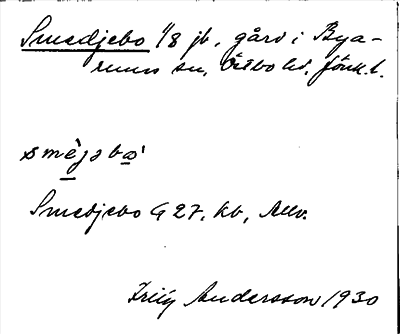 Smedjebo 1/8 jb, gård i Bya-
rums sn, Östbo hd, Jönk. l.
smèjəbo̱'
Smedjebo G 27, kb, Allv.
Fritiof Andersson 1930